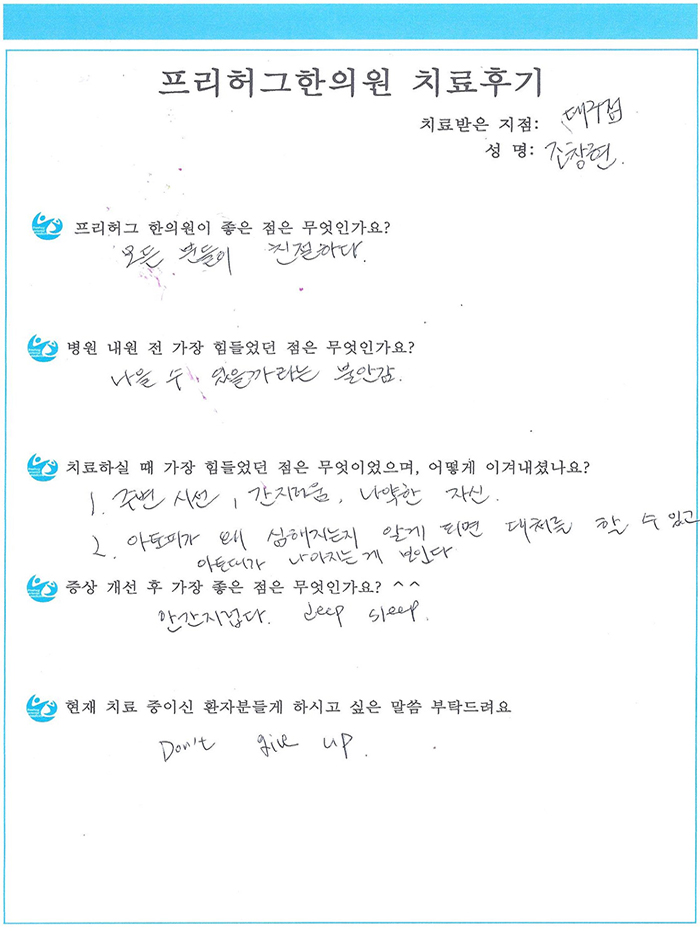 프리허그한의원 치료후기
치료받은 지점: 대구점
성 명: 조창현.
프리허그 한의원이 좋은 점은 무엇인가요?
모든 분들이 친절하다.
병원 내원 전 가장 힘들었던 점은 무엇인가요?
나을 수 있을까라는 불안감.
치료하실 때 가장 힘들었던 점은 무엇이었으며, 어떻게 이겨내셨나요?
1. 주변 시선, 간지러움, 나약한 자신.
2. 아토피가 왜 심해지는지 알게 되면 대처를 할 수 있고
아토피가 나아지는게 보인다
증상 개선 후 가장 좋은 점은 무엇인가요? ^^
안간지럽다. deep sleep.
현재 치료 중이신 환자분들게 하시고 싶은 말씀 부탁드려요
Don't give up.